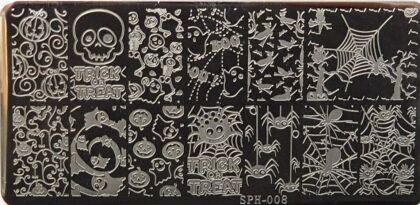 TRICK
TREAT
BOO
TRICK
OR
TREAT
SPH-008